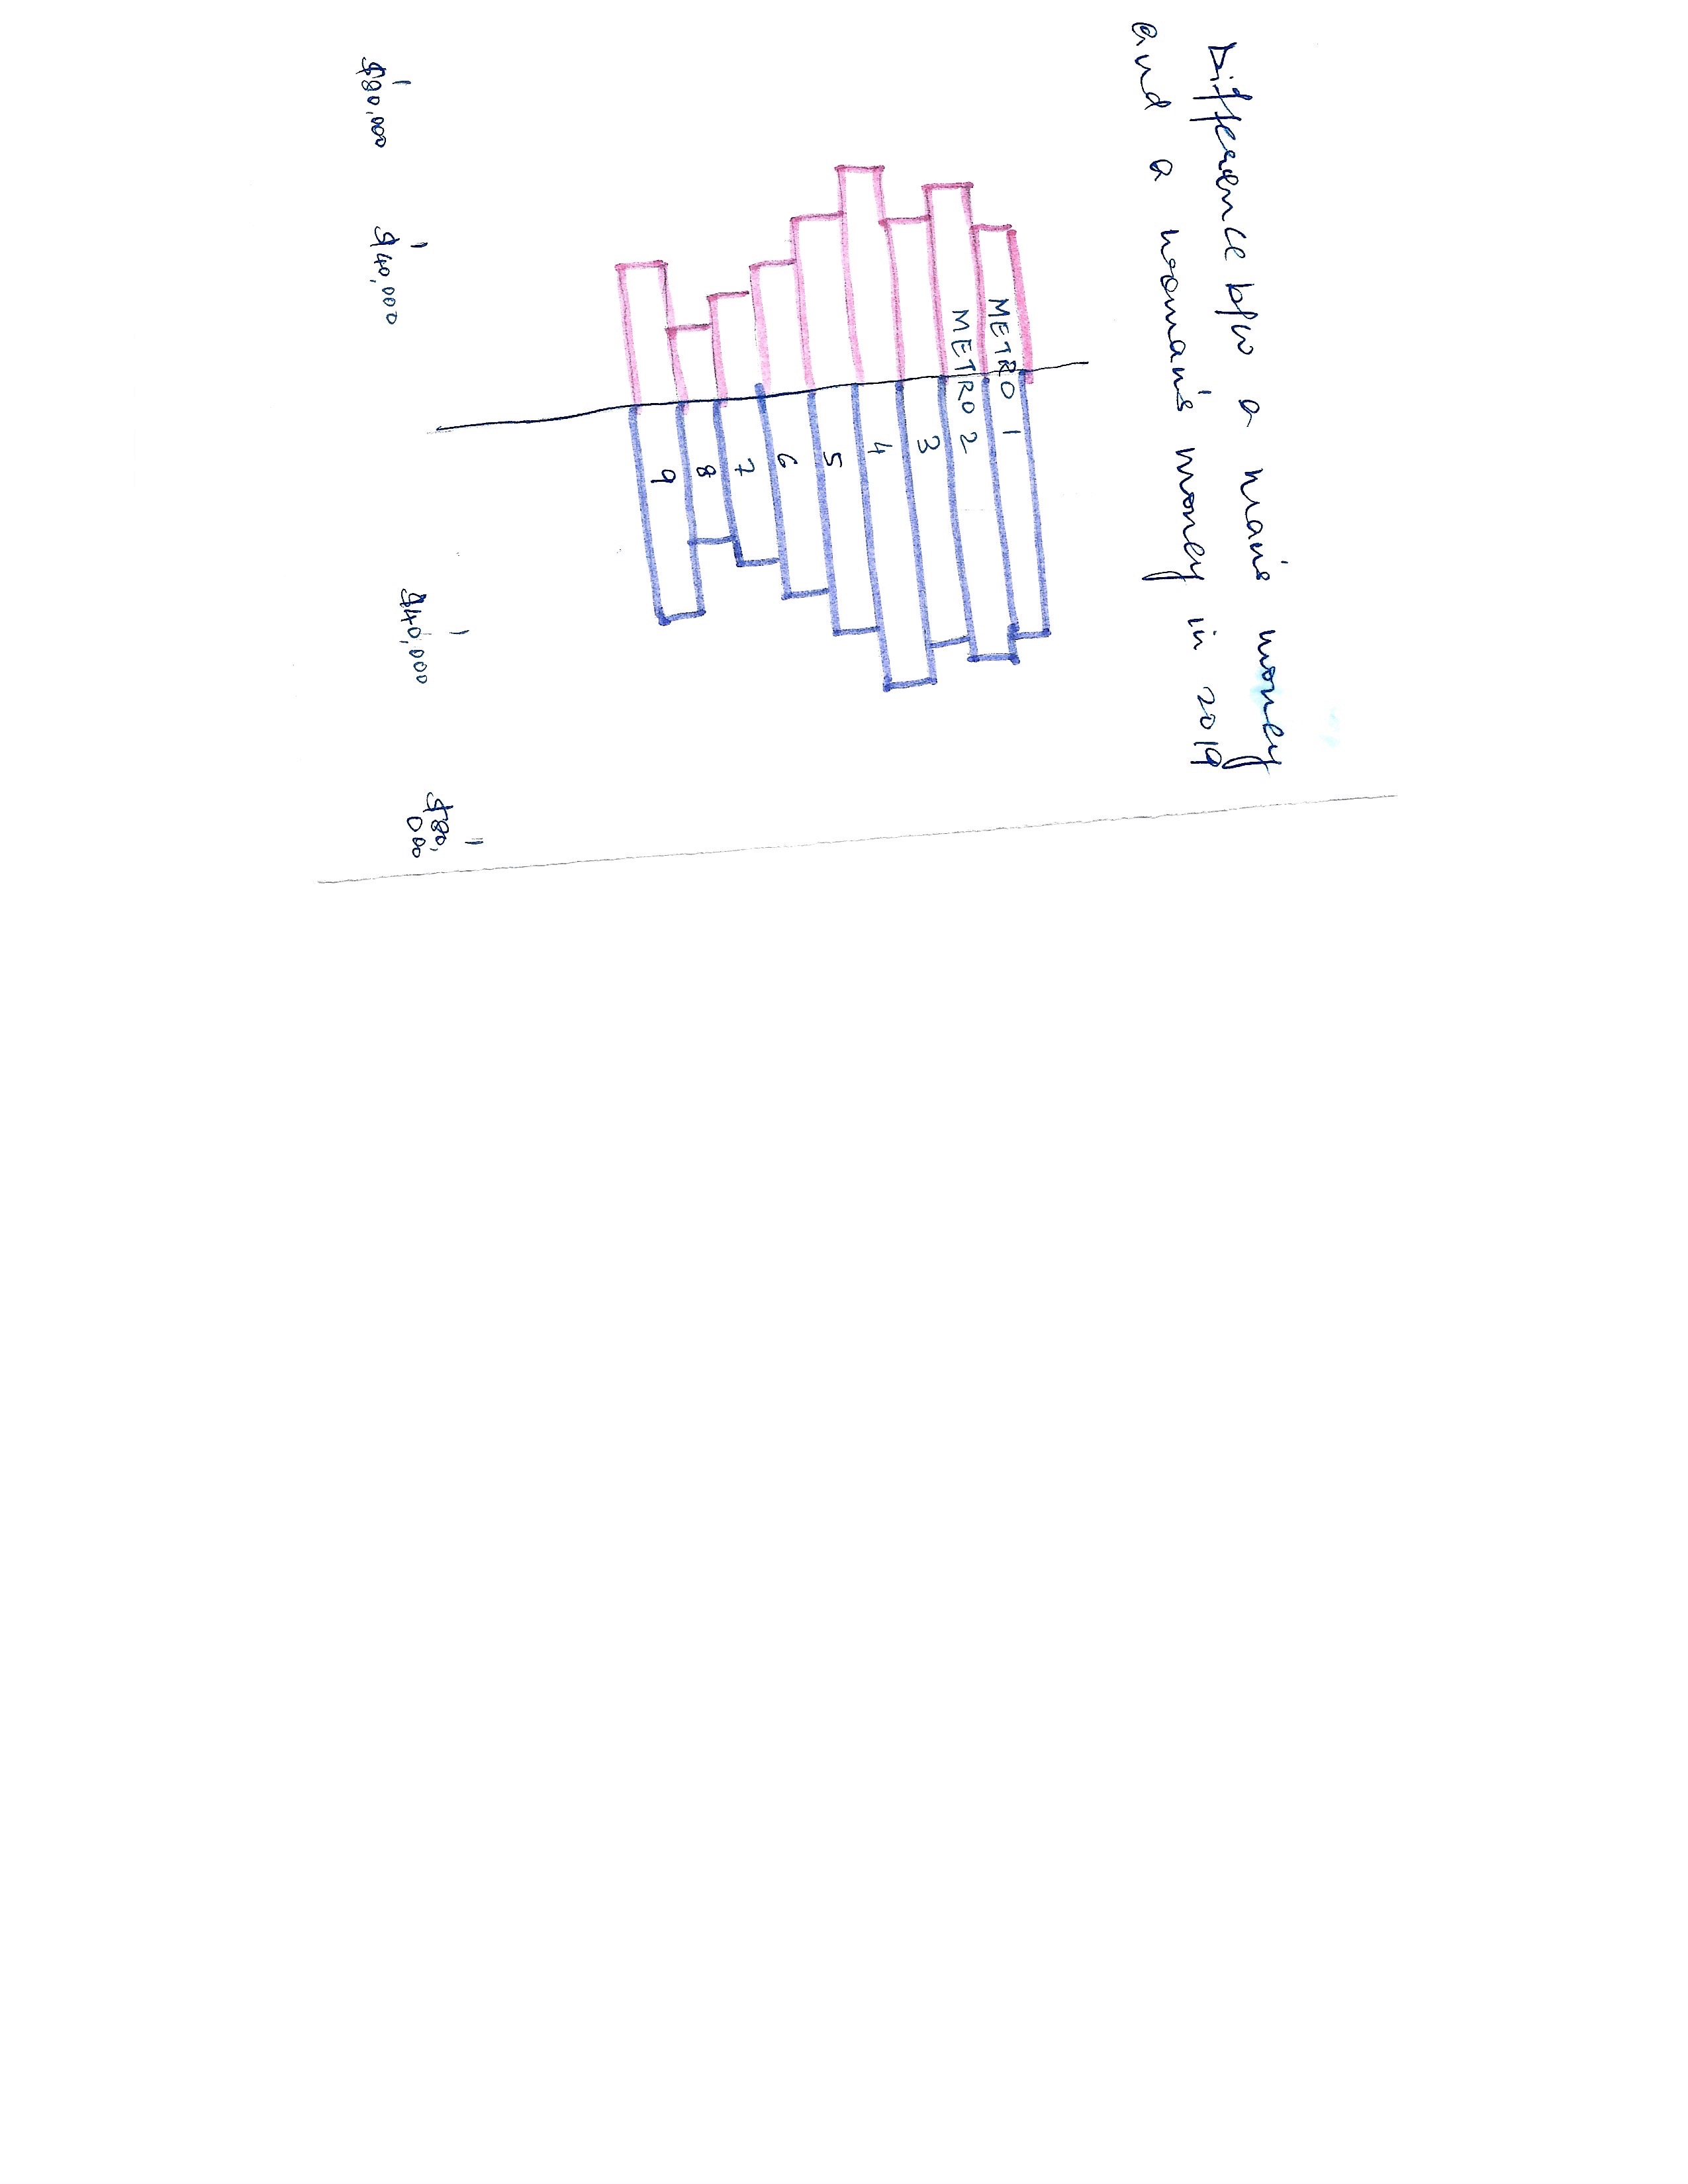 Difference b/w a man's money
and a woman's money in 2019
METRO 1
METRO 2
3
4
5
6
7
8
9
$80,000
$40,000
$40,000
$80,
000